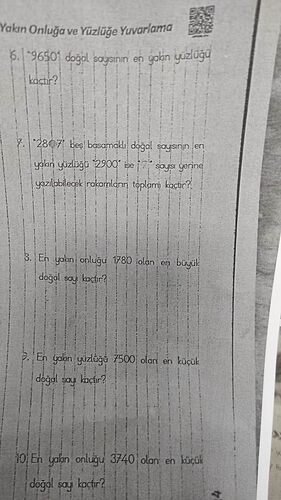 Yakın Onluğa ve Yüzlüğe Yuvarlama
6. "9650" doğal sayısının en yakın yüzlüğü
kaçtır?
7. beş basamaklı doğal sayısının en
yakın yüzlüğü "2900" ise "?" sayısı yerine
yazılabilecek rakamların toplamı kaçtır?
8. En yakın onluğu 1780 olan en büyük
doğal sayı kaçtır?
9. En yakın yüzlüğü 7500 olan en küçük
doğal sayı kaçtır?
10. En yakın onluğu 3740 olan en küçük
doğal sayı kaçtır?
4